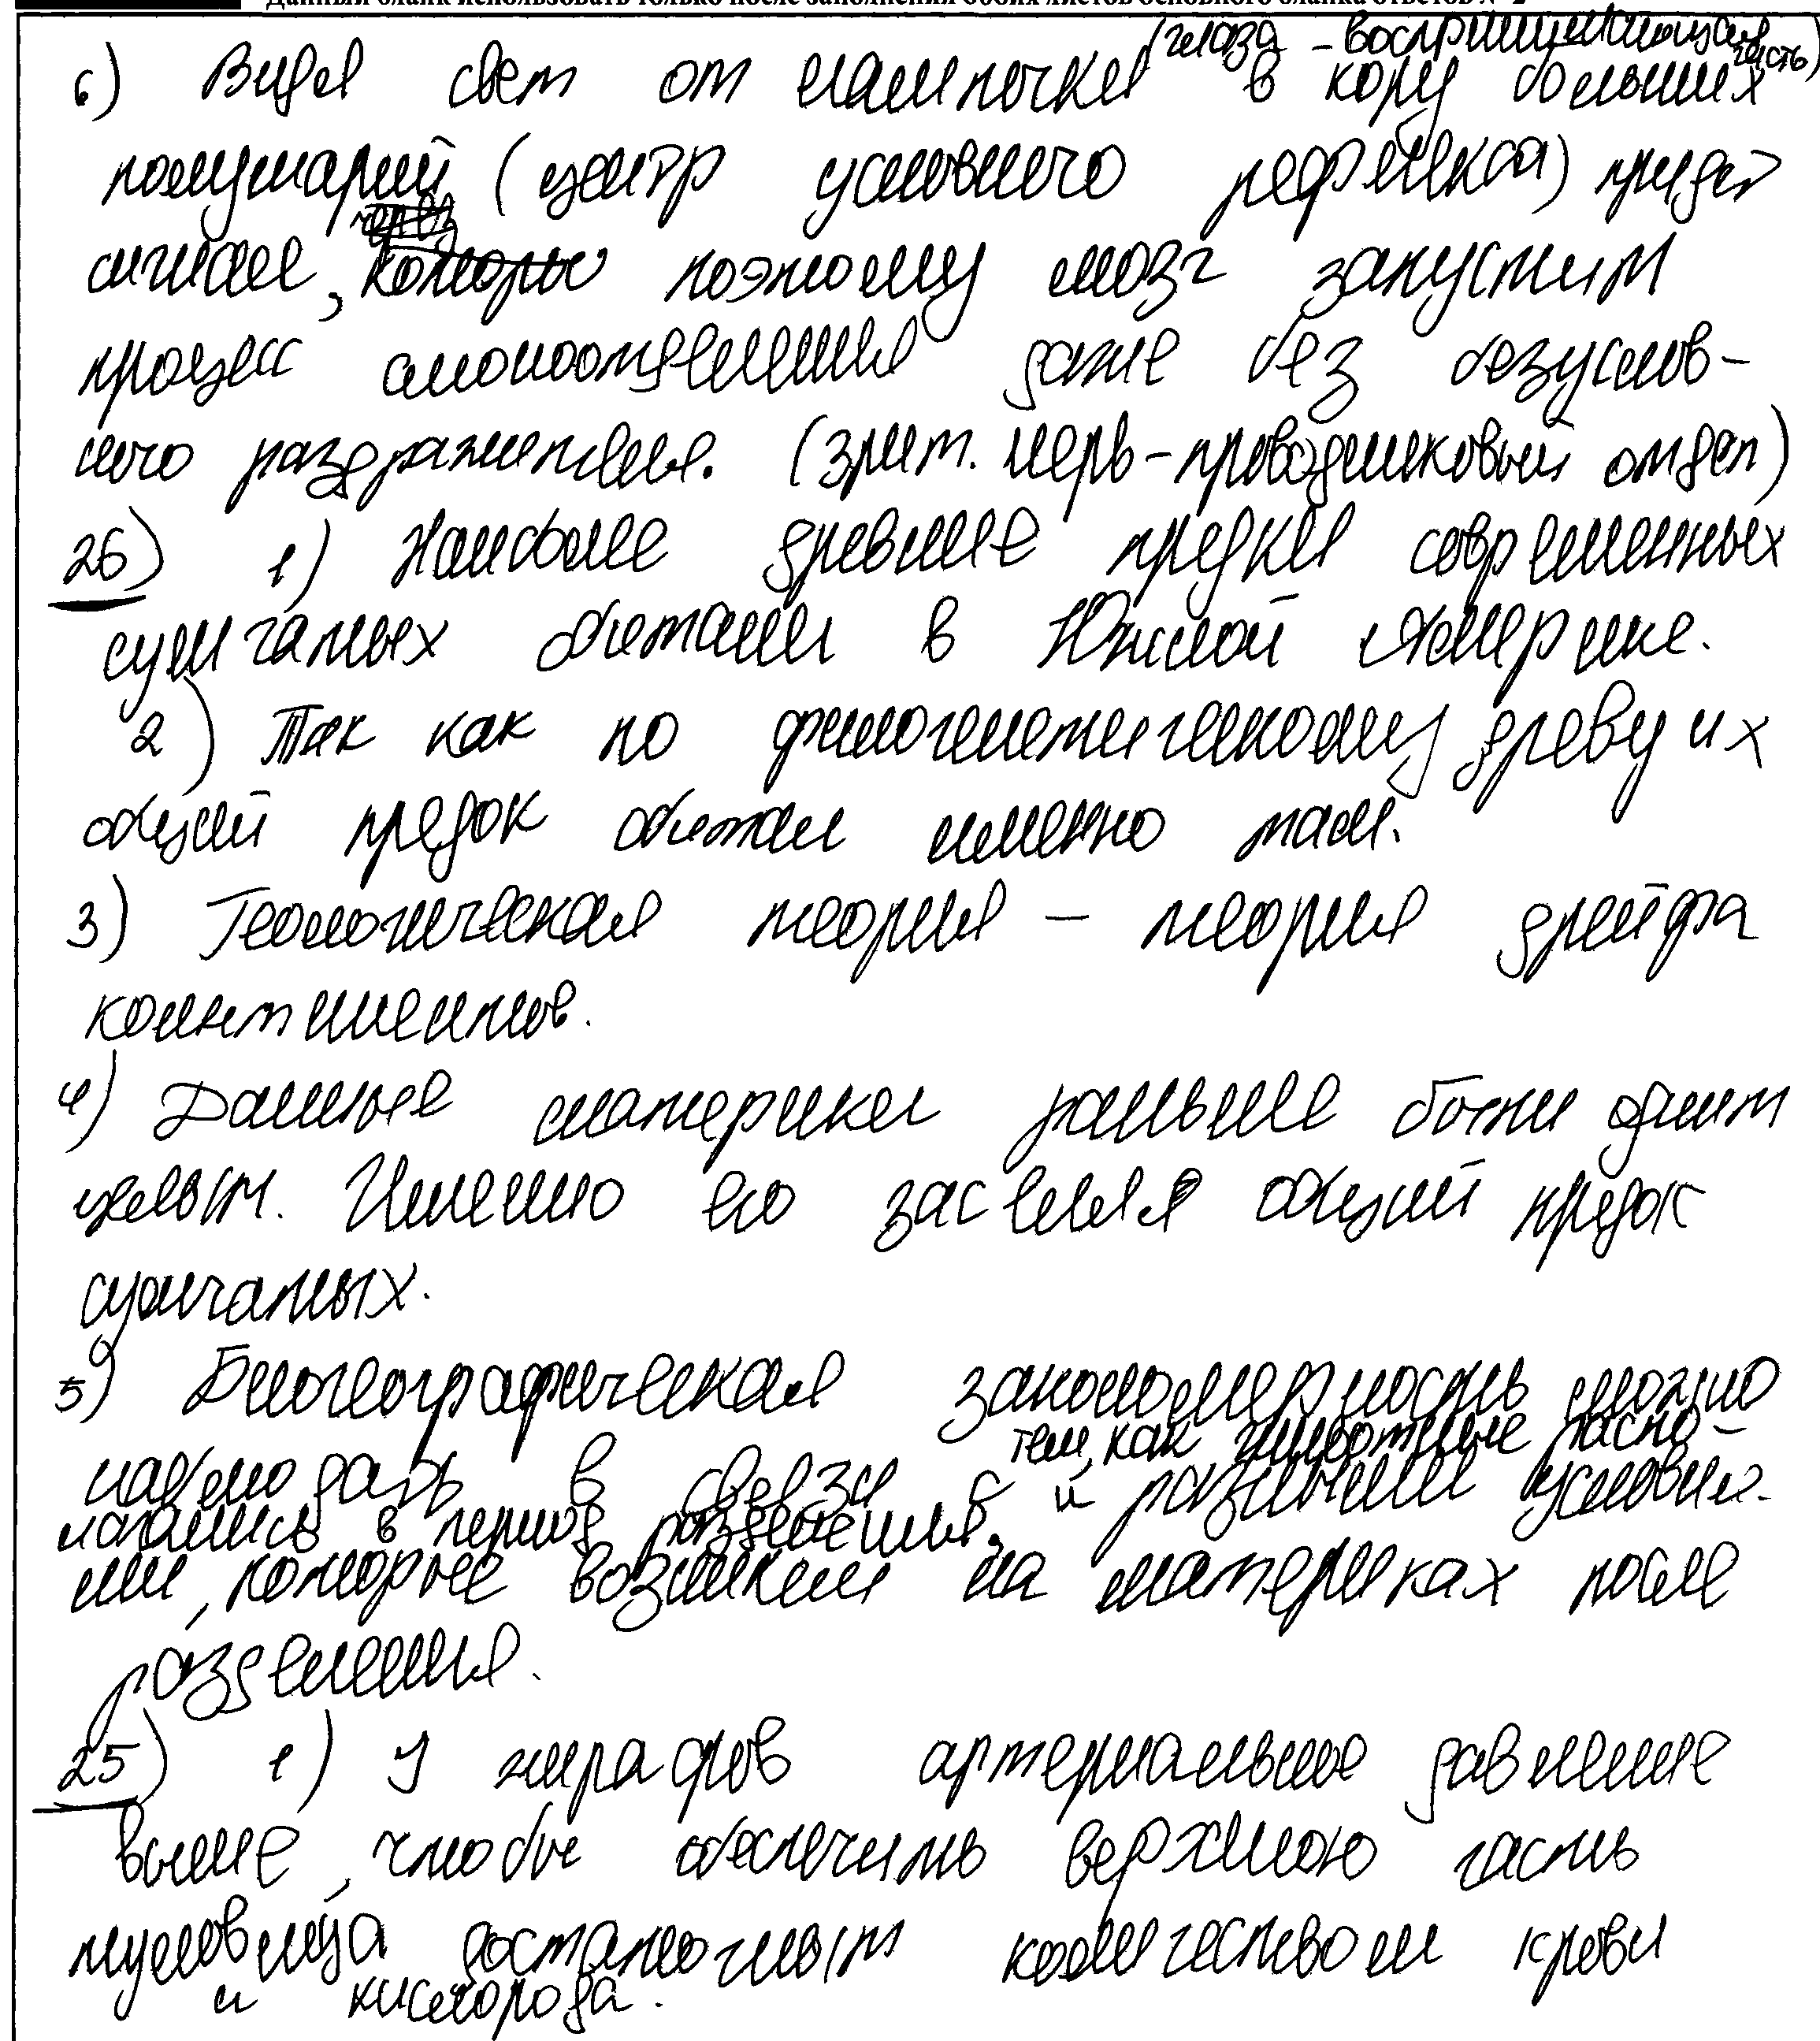 Данный бланк использовать только после заполнения обоих листов основного бланка ответов № 2
(глаза – воспринимающая часть)
6) Видя свет от лампочки в кору больших
полушарий (центр условного рефлекса) придет
сигнал, поэтому мозг запустит
процесс слюноотделения даже без безуслов-
ного раздражителя. (зрит. нерв - проводниковый отдел)
26) 1) Наиболее древние предки современных
сумчатых обитали в Южной Америке.
2) Так как по филогенетическому древу их
общий предок обитал именно там.
3) Геологическая теория – теория дрейфа
континентов.
4) Данные материки раньше были одним
целым. Именно его заселял общий предок
сумчатых.
5) Биогеографическая закономерность можно
тем, как животные распо-
наблюдать в связи с и разными условия-
лагались в период разделения.
ми, которые возникли на материках после
разделения.
25) 1) У жирафов артериальное давление
выше, чтобы обеспечить верхнюю часть
туловища достаточным количеством крови
и кислорода.